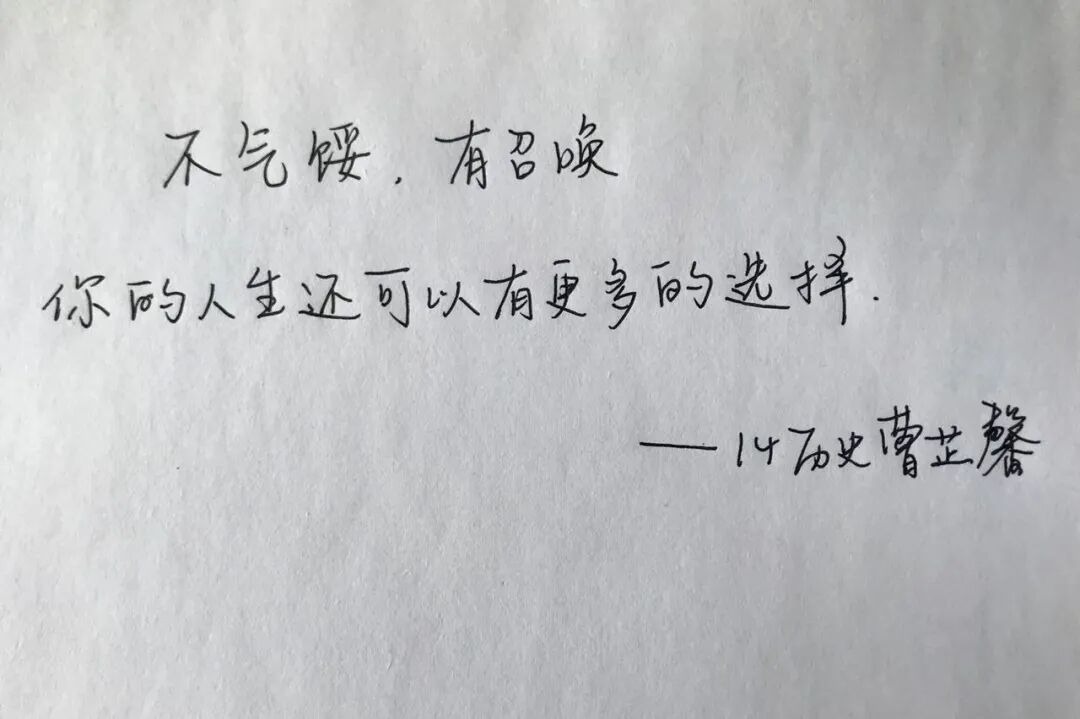 不气馁，有召唤
你的人生还可以有更多的选择.
——14历史曹芷馨